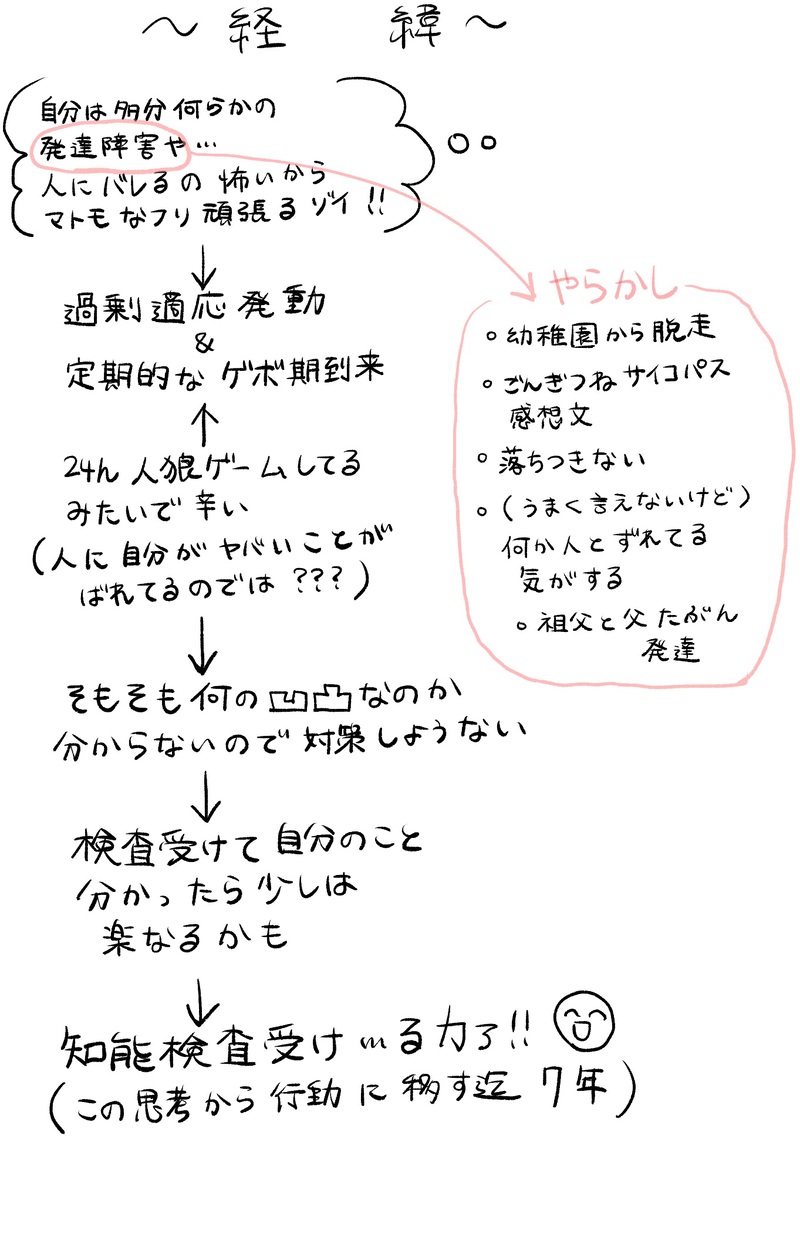 ～経 緯～
自分は多分何らかの
発達障害や…
人にバレるの怖いから
マトモなフリ頑張るゾイ!!
↓
過剰適応発動
&
定期的なゲボ期到来
↑
24h 人狼ゲームしてる
みたいで辛い
(人に自分がヤバいことが
ばれてるのでは???)
↓
そもそも何の凹凸なのか
分からないので対策しようない
↓
検査受けて自分のこと
分かったら少しは
楽なるかも
↓
知能検査受け…る力了!!
(この思考から行動に移す迄 7年)
やらかし
○幼稚園から脱走
○ごんぎつねサイコパス
感想文
○落ちつきない
○(うまく言えないけど)
何か人とずれてる
気がする
○祖父と父たぶん
発達